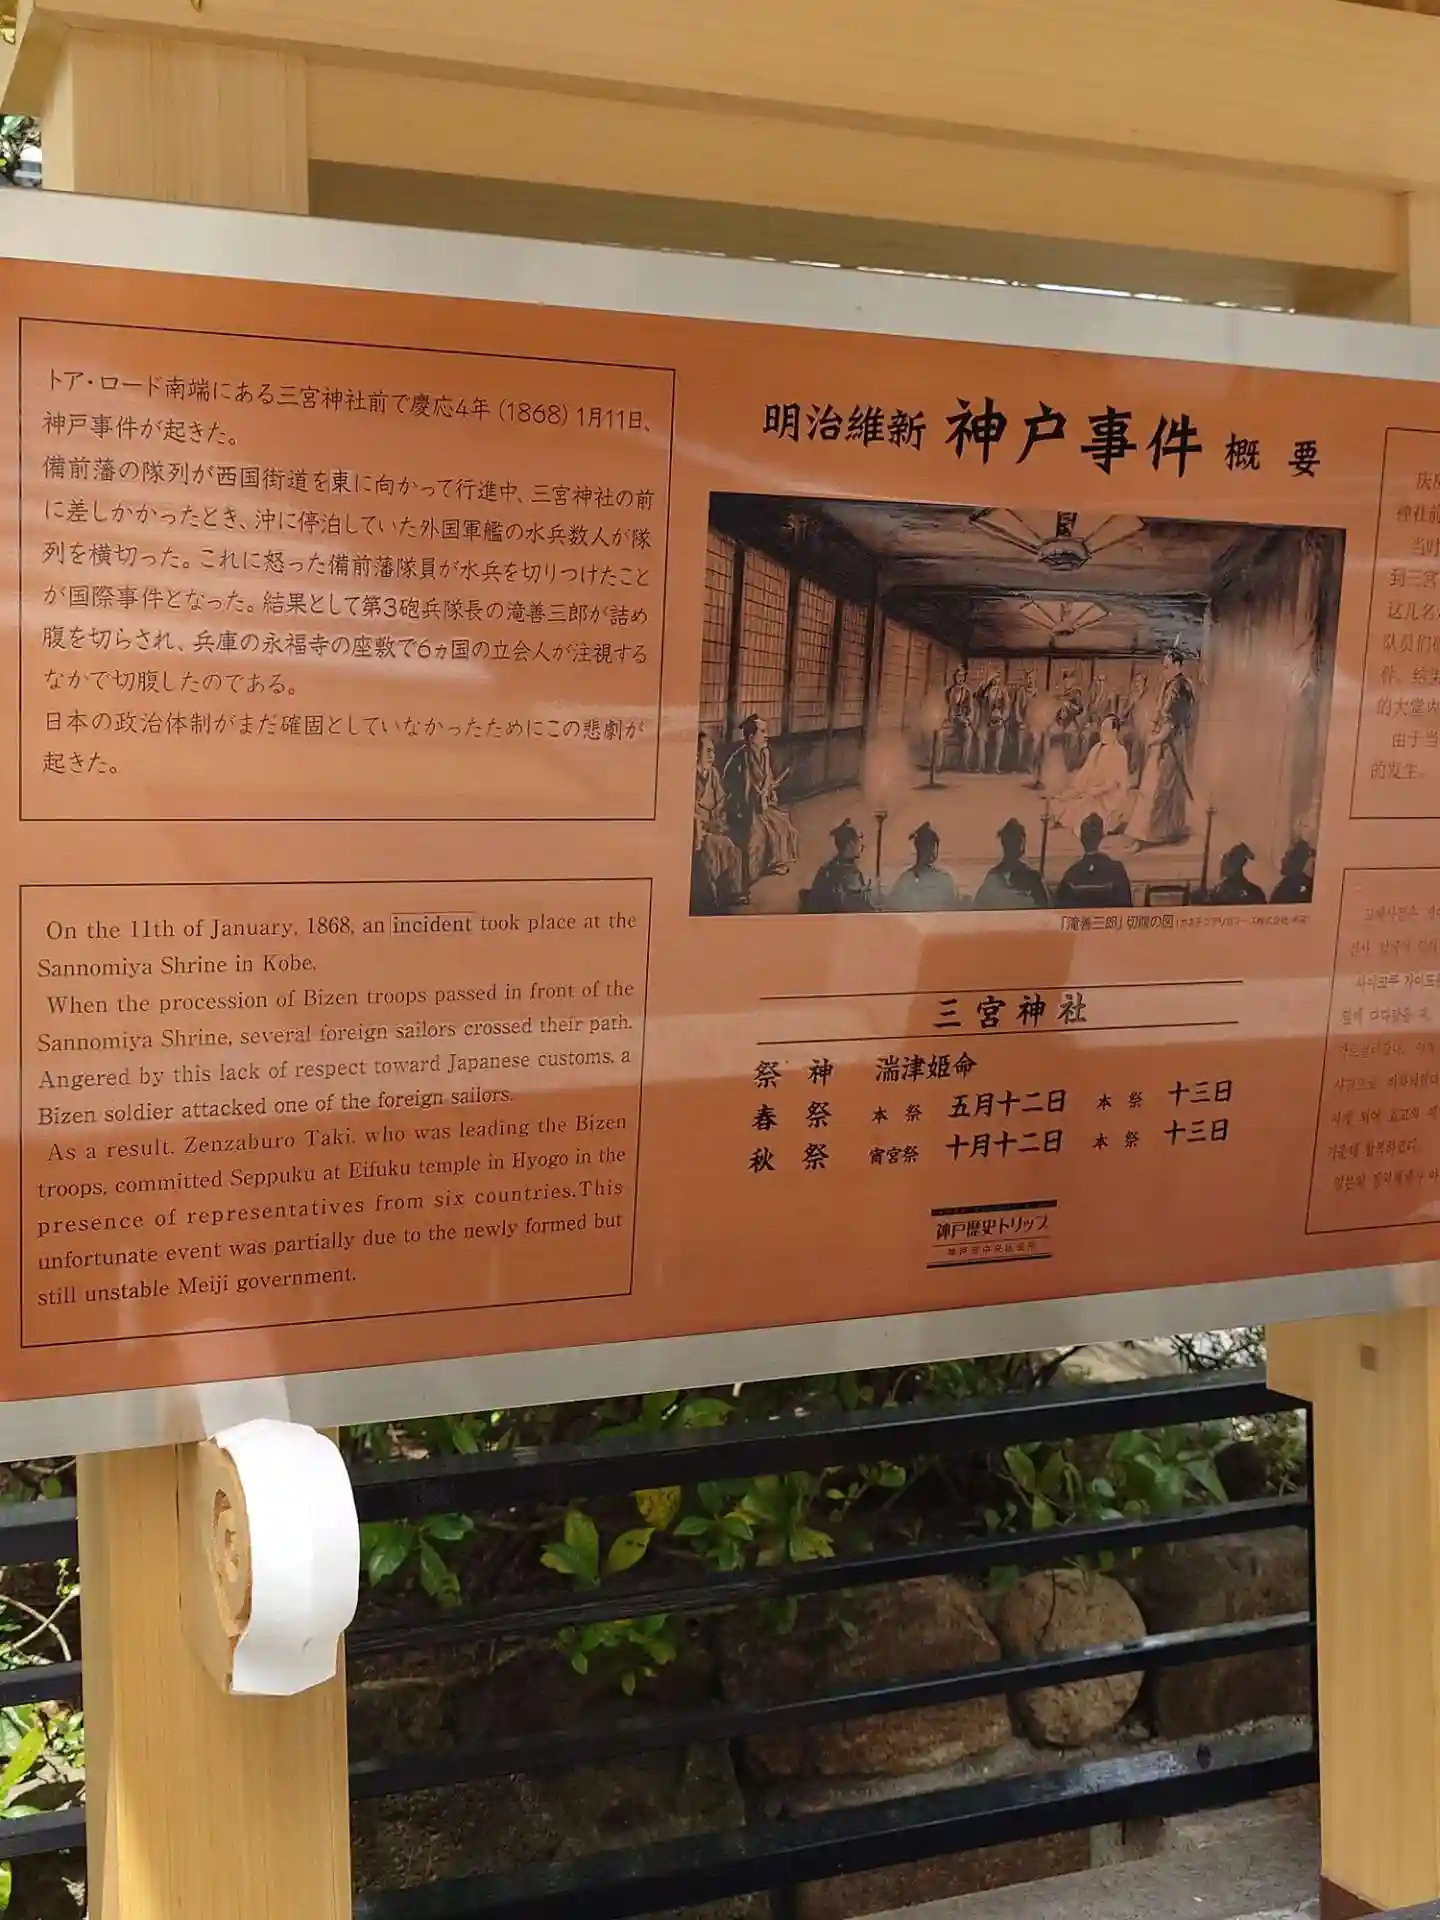 トア・ロード南端にある三宮神社前で慶応4年(1868)1月11日、
神戸事件が起きた。
備前藩の隊列が西国街道を東に向かって行進中、三宮神社の前
に差しかかったとき、沖に停泊していた外国軍艦の水兵数人が隊
列を横切った。これに怒った備前藩隊員が水兵を切りつけたこと
が国際事件となった。結果として第3砲兵隊長の滝善三郎が詰め
腹を切らされ、兵庫の永福寺の座敷で6ヵ国の立会人が注視する
なかで切腹したのである。
日本の政治体制がまだ確固としていなかったためにこの悲劇が
起きた。
On the 11th of January, 1868, an incident took place at the
Sannomiya Shrine in Kobe.
When the procession of Bizen troops passed in front of the
Sannomiya Shrine, several foreign sailors crossed their path.
Angered by this lack of respect toward Japanese customs, a
Bizen soldier attacked one of the foreign sailors.
As a result, Zenzaburo Taki, who was leading the Bizen
troops, committed Seppuku at Eifuku temple in Hyogo in the
presence of representatives from six countries.This
unfortunate event was partially due to the newly formed but
still unstable Meiji government.
明治維新 神戸事件 概要
「滝善三郎」切腹の図
三宮神社
祭神 湍津姫命
春祭 本祭 五月十二日 本祭 十三日
秋祭 宵宮祭 十月十二日 本祭 十三日
神戸歴史トリップ
神戸市中央区役所
神社前
当时
到三宫
这几名
队员们
件。结果
的大堂内
由于当
的发生。